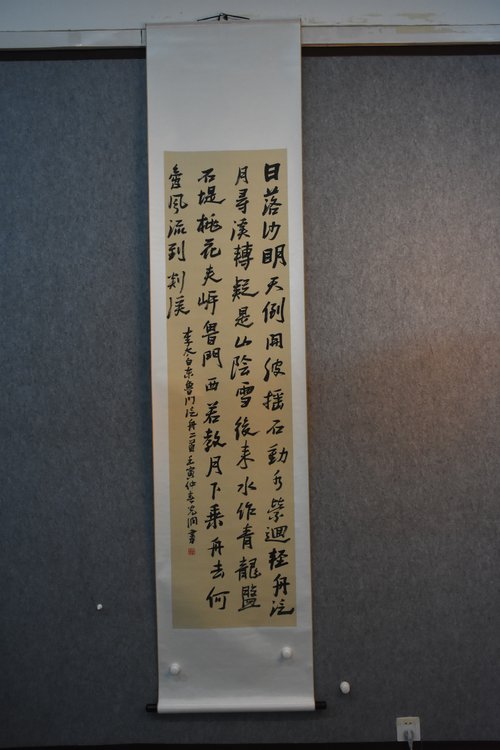 日落沙明天倒開波摇石動水縈迴輕舟泛
月尋溪轉疑是山陰雪後来水作青龍盤
石堤桃花夾岍魯門西若教月下乘舟去何
啻風流到剡溪
李太白東魯门泛舟二首壬寅仲春書